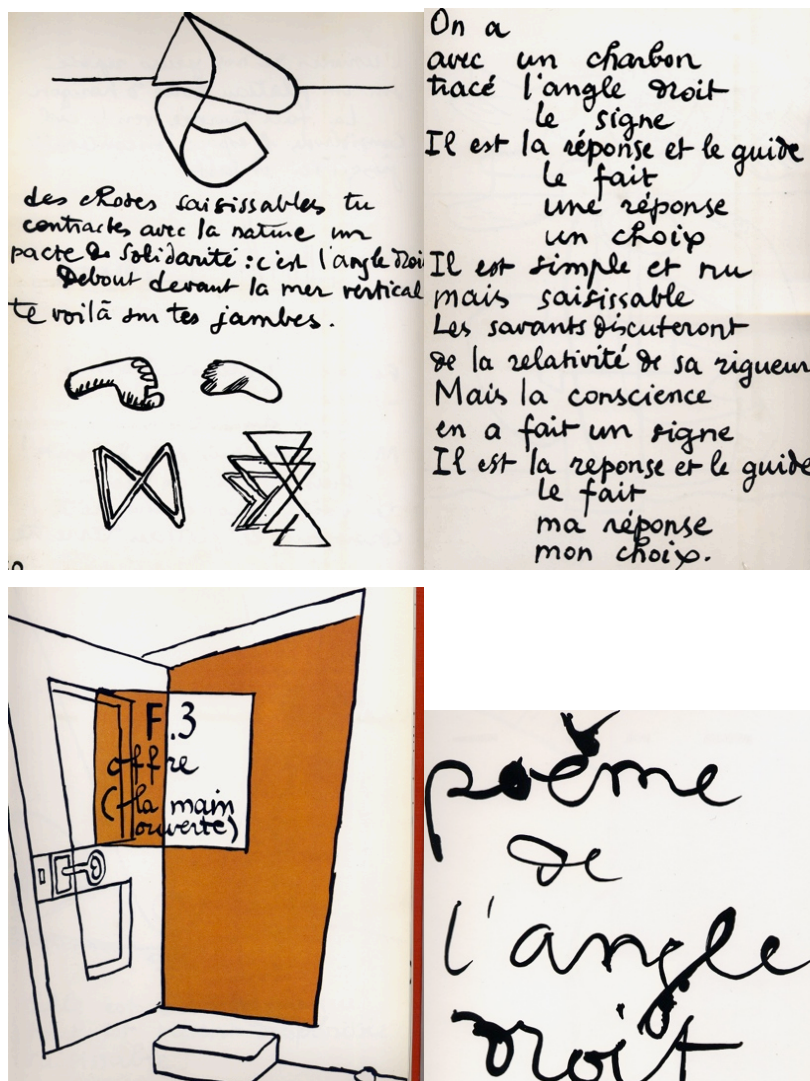 des choses saisissables tu
contractes avec la nature un
pacte de solidarité : c'est l'angle droi
Debout devant la mer vertical
te voilà sur tes jambes.
On a
avec un charbon
tracé l'angle droit
le signe
Il est la réponse et le guide
le fait
une réponse
un choix
Il est simple et nu
mais saisissable
Les savants discuteront
de la relativité de sa rigueur
Mais la conscience
en a fait un signe
Il est la reponse et le guide
le fait
ma réponse
mon choix.
F.3
offre
(la main
ouverte)
poème
de
l'angle
droit